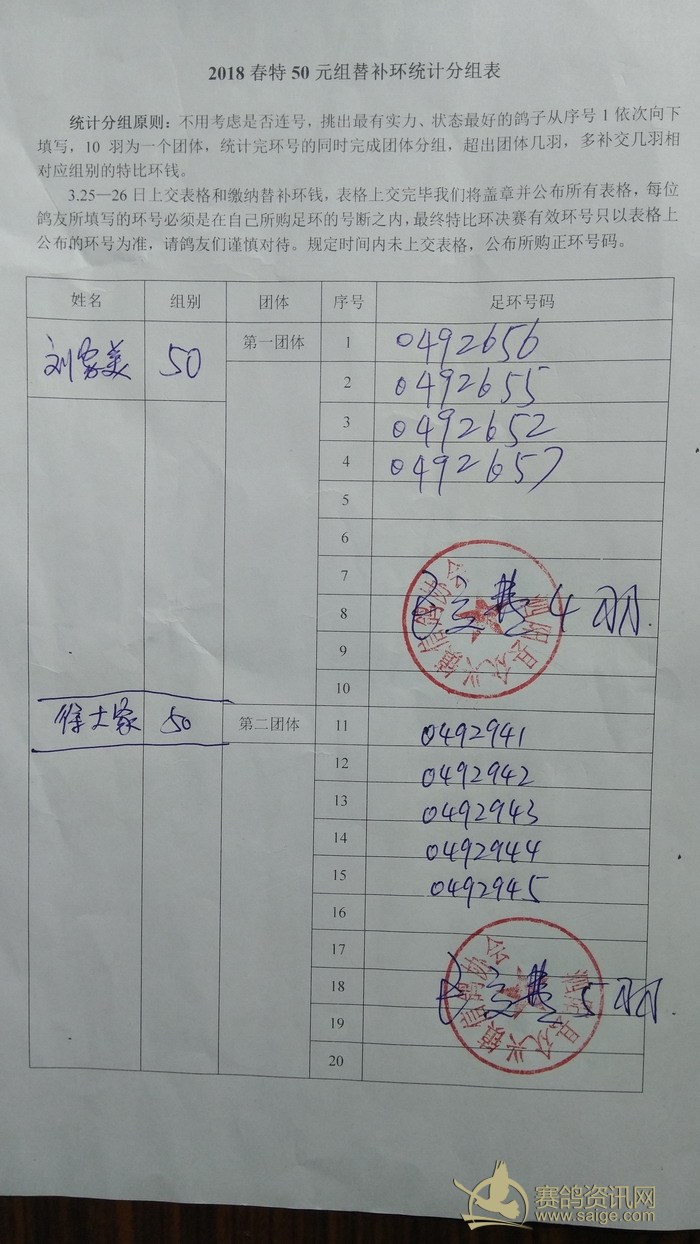 2018 春特 50 元组替补环统计分组表
统计分组原则：不用考虑是否连号，挑出最有实力、状态最好的鸽子从序号 1 依次向下
填写，10 羽为一个团体，统计完环号的同时完成团体分组，超出团体几羽，多补交几羽相
对应组别的特比环钱。
3.25—26 日上交表格和缴纳替补环钱，表格上交完毕我们将盖章并公布所有表格，每位
鸽友所填写的环号必须是在自己所购足环的号断之内，最终特比环决赛有效环号只以表格上
公布的环号为准，请鸽友们谨慎对待。规定时间内未上交表格，公布所购正环号码。
姓名 组别 团体 序号 足环号码
刘家美 50 第一团体 1 0492656
2 0492655
3 0492652
4 0492657
5
6
7
8 已交费 4 羽.
9
10
泗阳县众兴镇信鸽协会
徐大家 50 第二团体 11 0492941
12 0492942
13 0492943
14 0492944
15 0492945
16
17
18 已交费 5 羽.
19
20
泗阳县众兴镇信鸽协会
赛鸽资讯网
www.saige.com